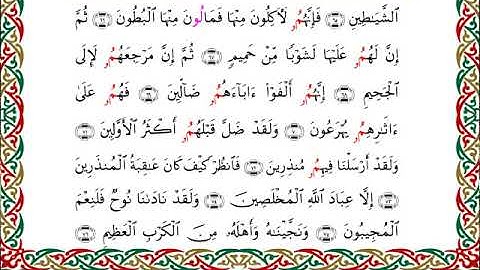 ٱلشَّيَٰطِينِ ۝ فَإِنَّهُمُۥ لَأٓكِلُونَ مِنْهَا فَمَالُونَ مِنْهَا ٱلْبُطُونَ ۝ ثُمَّ
إِنَّ لَهُمُۥ عَلَيْهَا لَشَوْبًا مِّنْ حَمِيمٍ ۝ ثُمَّ إِنَّ مَرْجِعَهُمُۥ لَإِلَى
ٱلْجَحِيمِ ۝ إِنَّهُمُۥ أَلْفَوْا۟ ءَابَآءَهُمُۥ ضَآلِّينَ ۝ فَهُمُۥ عَلَىٰٓ
ءَاثَٰرِهِمُۥ يُهْرَعُونَ ۝ وَلَقَدْ ضَلَّ قَبْلَهُمُۥ أَكْثَرُ ٱلْأَوَّلِينَ ۝
وَلَقَدْ أَرْسَلْنَا فِيهِمُۥ مُنذِرِينَ ۝ فَٱنظُرْ كَيْفَ كَانَ عَٰقِبَةُ ٱلْمُنذَرِينَ
۝ إِلَّا عِبَادَ ٱللَّهِ ٱلْمُخْلَصِينَ ۝ وَلَقَدْ نَادَىٰنَا نُوحٌ فَلَنِعْمَ
ٱلْمُجِيبُونَ ۝ وَنَجَّيْنَٰهُ وَأَهْلَهُۥ مِنَ ٱلْكَرْبِ ٱلْعَظِيمِ ۝